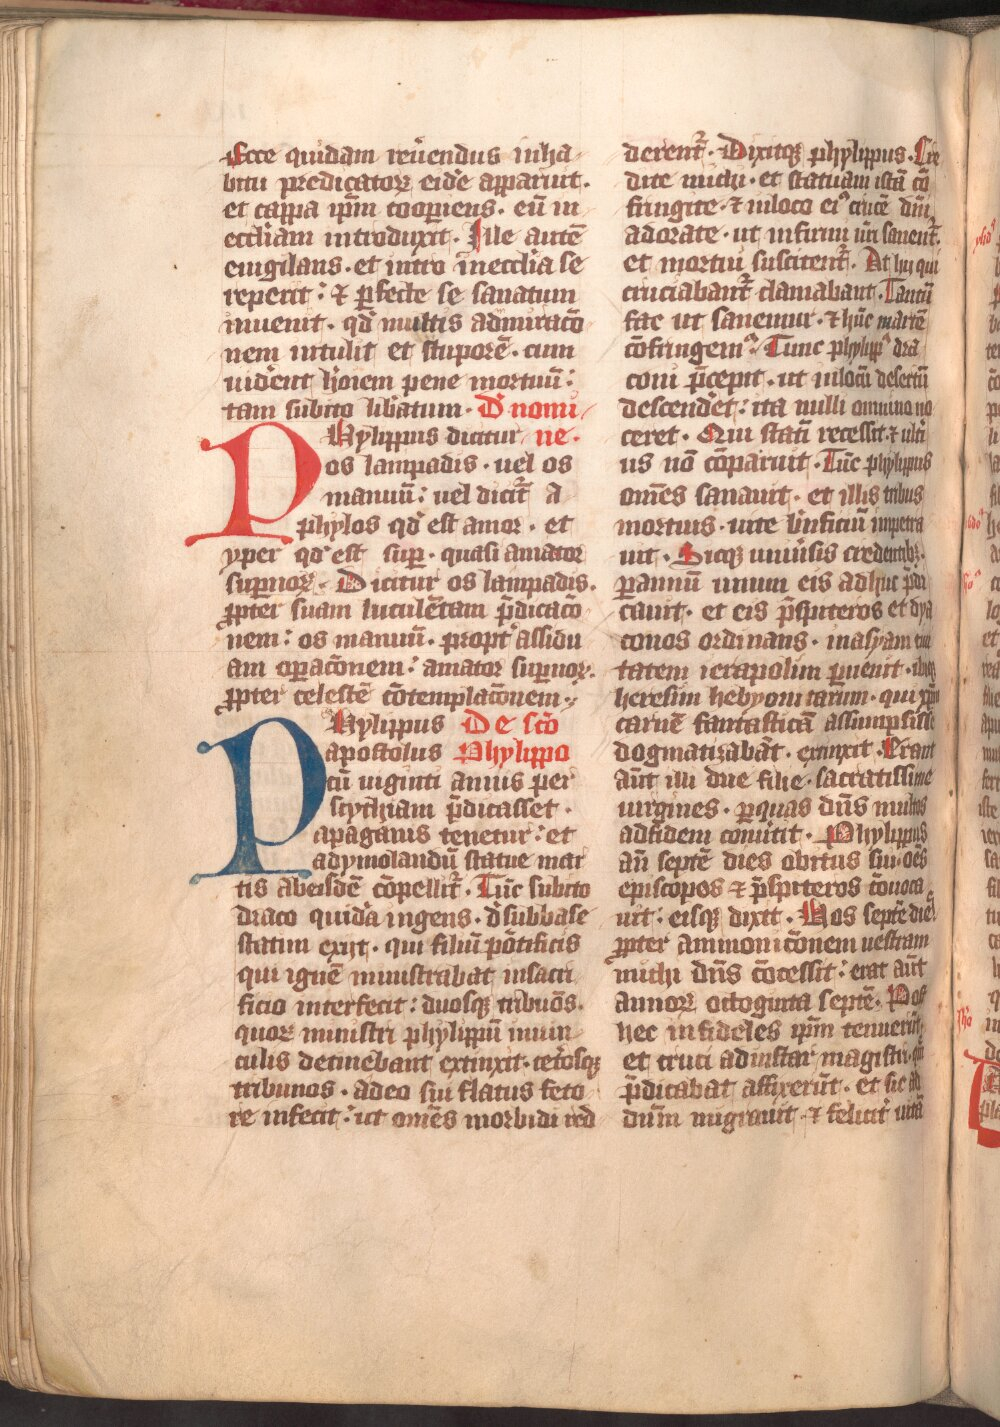 Ecce quidam reu̅endus in ha
bitu predicatoꝝ eide apparuit.
et cappa ip̅m coop̲iens. eu̅ in
eccl̅iam introduxit. Ille aute̅
euigilans. et intro in eccl̅ia se
reperit: ⁊ ꝑfecte se sanatum
inuenit. qd̅ multis admiraco̅
nem intulit et stupore̅. cum
uident ho̅iem pene mortuu̅:
tam subito lib̅atum. De nomi
PHylippus dicitur ne.
os lampadis. uel os
manuu̅: uel dicit̅ a
phylos qd̅ est amor. et
yper qd̅ est suꝑ. quasi amator
suꝑnoꝝ. Dicitur os lampadis.
ꝓpter suam lucule̅tam p̅dicaco̅
nem: os manuu̅. propt̅ assidu
am oꝑaco̅nem: amator suꝑnoꝝ.
ꝓpter celeste̅ co̅templaco̅nem.
PHylippus De sc̅o
apostolus Phylippo
cu̅ uiginti annis per
scythiam p̅dicasset.
a paganis tenetur: et
ad ymolandu̅ statue mar
tis abeisde̅ co̅pellit̅. Tu̅c subito
draco quida̅ ingens. d̅ sub base
statim exijt. qui filiu̅ po̅tificis
qui igne̅ ministrabat in sacri
ficio interfecit: duosqꝫ tribu̅os.
quoꝝ ministri phylippu̅ in uin
culis detinebant extinxit. cet̅osqꝫ
tribunos. adeo sui flatus feto
re infecit: ut om̅es morbidi red
derent̅. Dixitqꝫ phylippus. Cre
dite michi. et statuam ista̅ co̅
fringite. ⁊ in loco eiꝰ cruce̅ dn̅i
adorate. ut infirmi ur̅i sanent̅.
et mortui suscitent̅. At hij qui
cruciabant̅ clamabant. Tantu̅
fac ut sanemur. ⁊ hu̅c marte̅
co̅fringemꝰ. Tunc phylippꝰ dra
coni p̅cepit. ut in locu̅ desertu̅
descend̅et: ita nulli omnino no
ceret. Qui stati̅ recessit. ⁊ ult̅i
us no̅ co̅paruit. Tu̅c phylippus
om̅es sanauit. et illis tribus
mortuis. uite b̅nficiu̅ impetra
uit. Sicqꝫ uniu̅sis credentibꝫ.
ꝑ annu̅ unum eis adhuc p̅di
cauit. et eis p̅spiteros et dya
conos ordinans. in asyam ciui
tatem ierapolim ꝑuenit. ibiqꝫ
heresim hebyonitarum. qui xp̅m
carne̅ fantastica̅ assumpsisse
dogmatizaba̅t. extinxit. Erant
au̅t illi due filie. sacratissime
uirgines. ꝑ quas dn̅s multos
ad fidem conu̅tit. Phylippus
au̅ septe̅ dies obitus sui. oe̅s
episcopos ⁊ p̅spiteros co̅uoca
uit: eisqꝫ dixit. Hos septe̅ dies
ꝓpter ammonico̅nem uestram
michi dn̅s co̅cessit: erat au̅t
annoꝝ octoginta septe̅. Post
hec infideles ip̅m tenueru̅t
et cruci ad instar magistri. que̅
p̅dicabat affixeru̅t. et sic ad
dn̅m migrauit. ⁊ felicit̅ uita̅